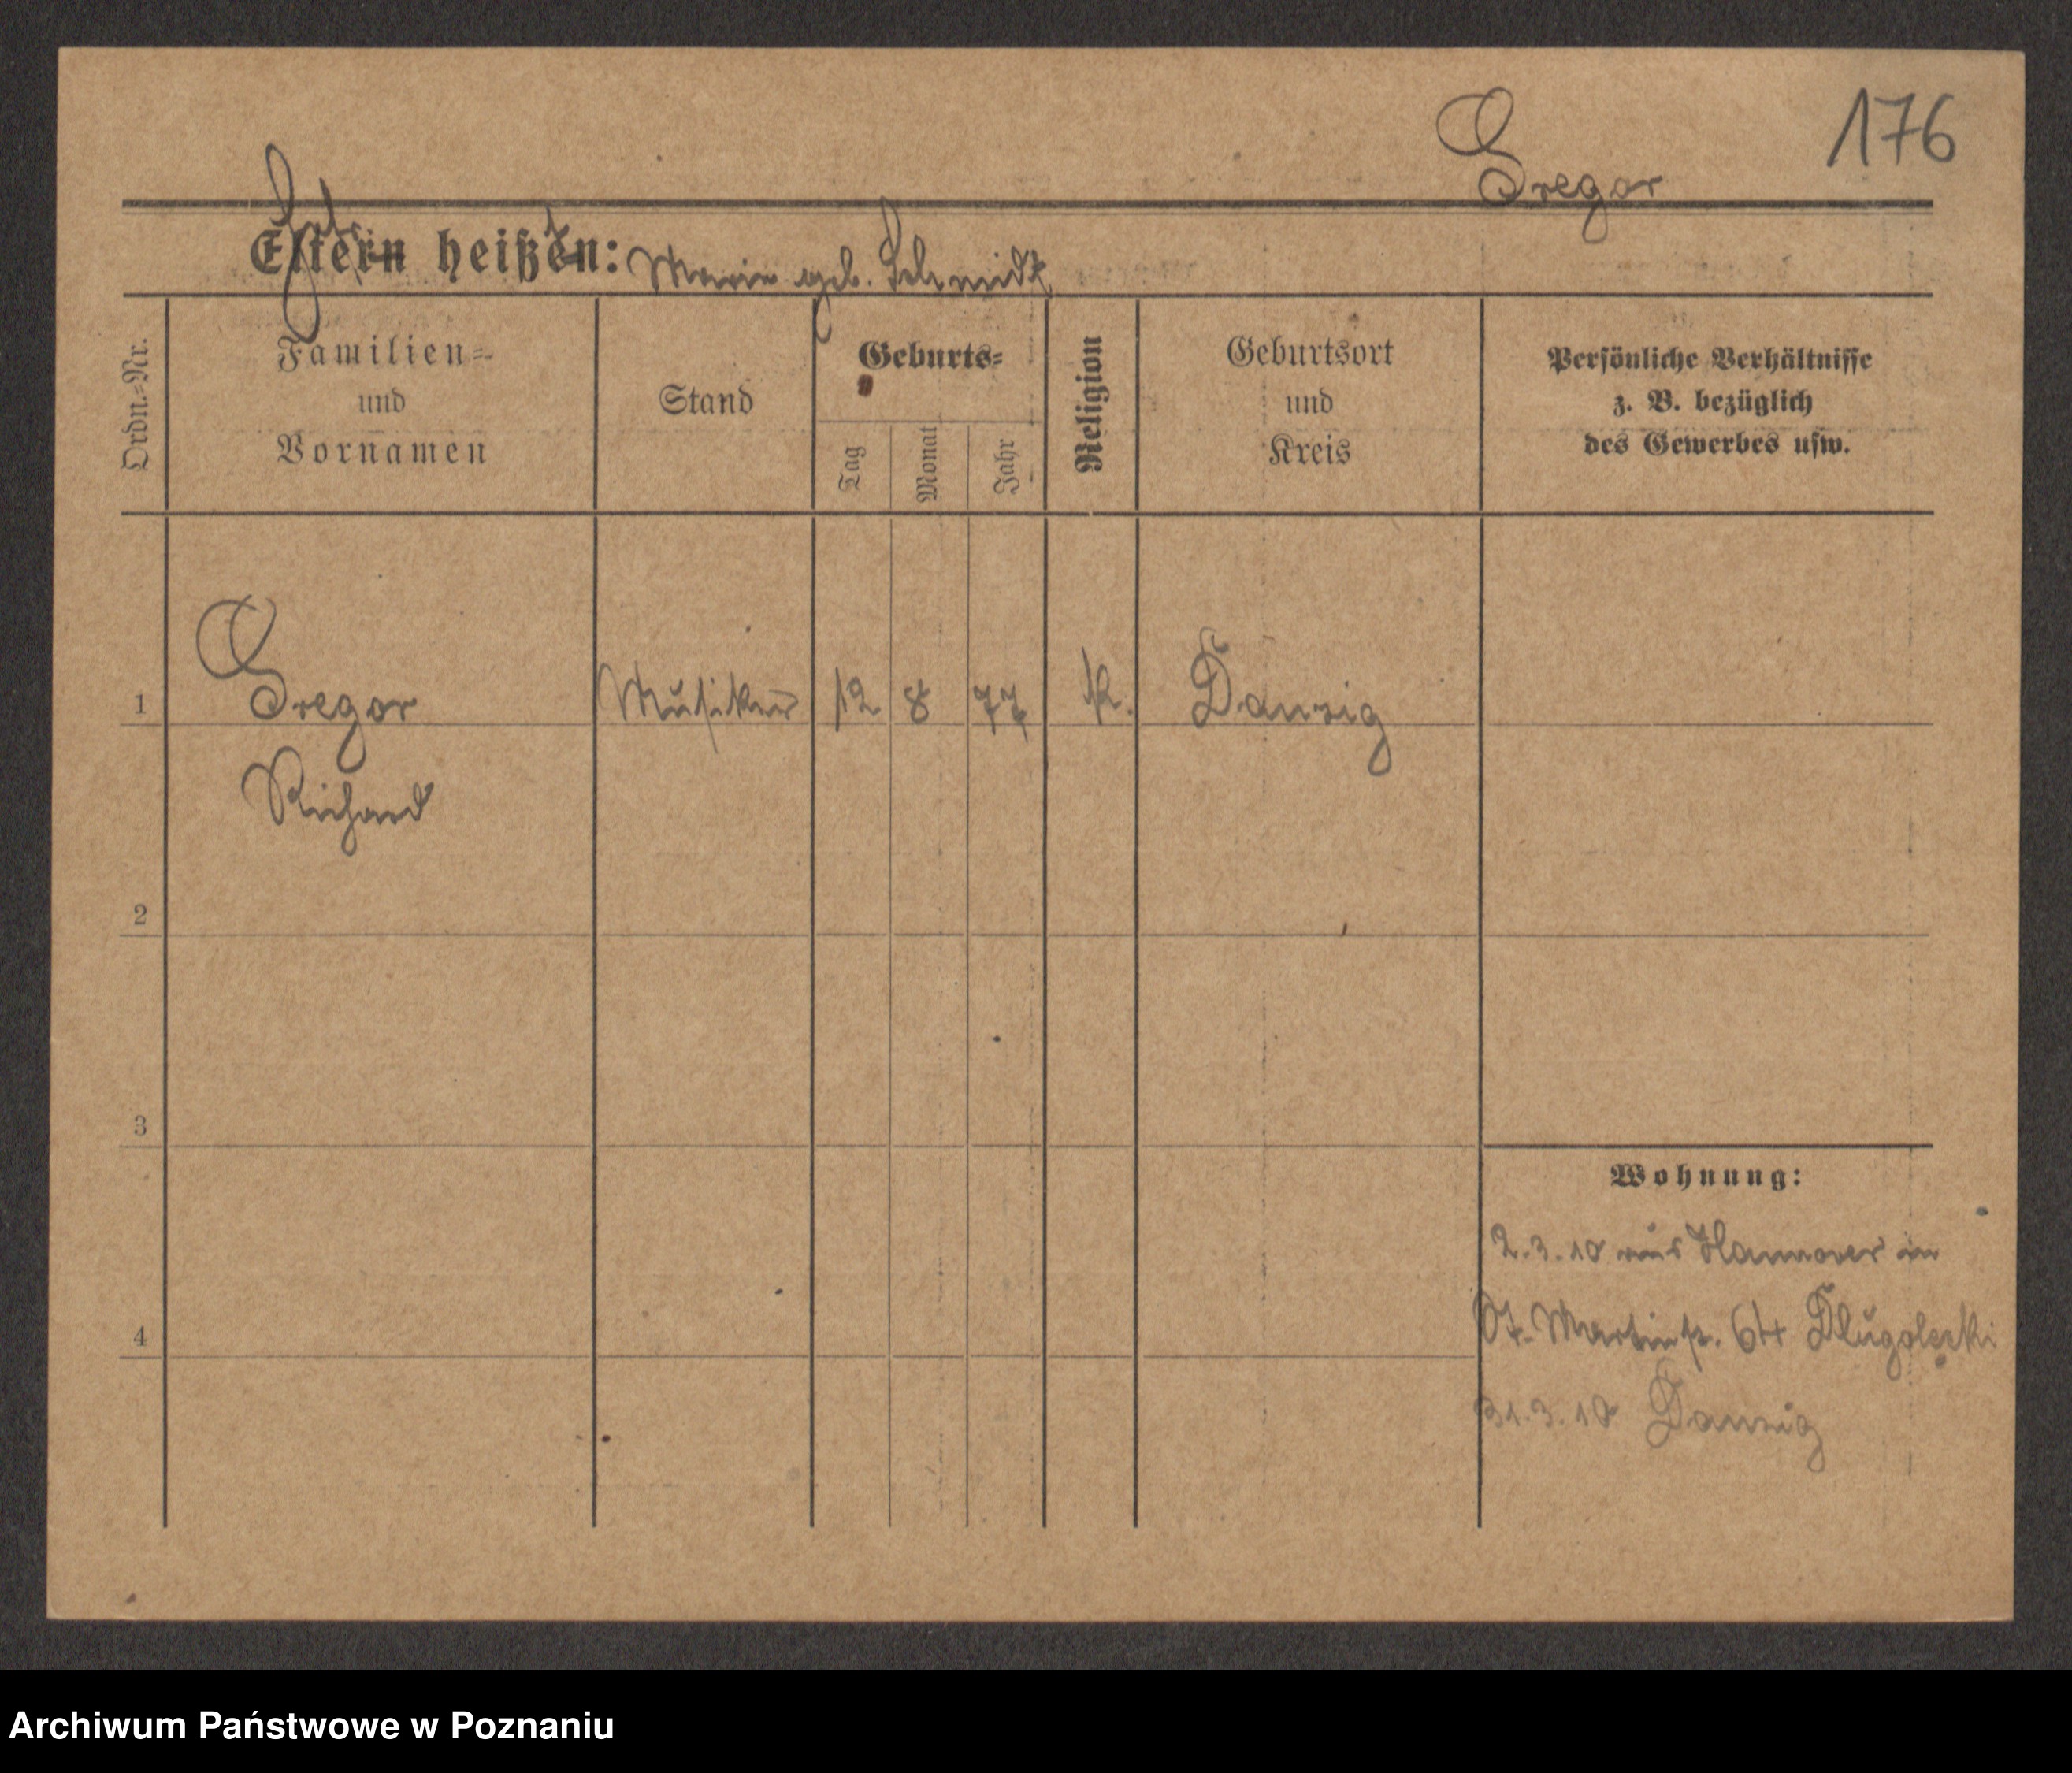 176
Gregor
Eltern heißen: Marie geb. Schmidt
Ordn.=Nr.
Familien= und Vornamen
Stand
Geburts=
Tag
Monat
Jahr
Religion
Geburtsort und Kreis
Persönliche Verhältnisse z. B. bezüglich des Gewerbes usw.
1 Gregor Musiker 12 8 77 k. Danzig
Richard
2
3
Wohnung:
2.3.10 aus Hannover in
4 St. Martinstr. 64 Dlugolecki
31.3.10 Danzig
Archiwum Państwowe w Poznaniu